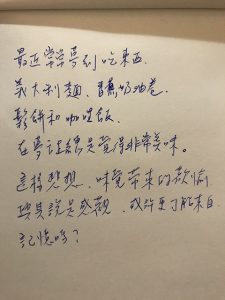 最近常常夢到吃東西，
義大利麵、香蕉奶油卷、
鬆餅和咖哩飯，
在夢裡總是覺得非常美味。
這樣想想，味覺帶來的歡愉
與其說是感觀，或許更可能來自
記憶嗎？